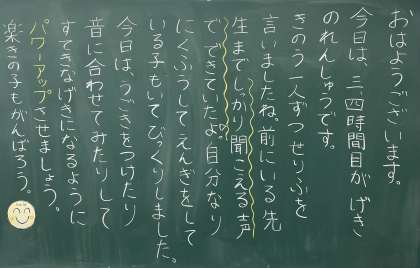 おはようございます。
今日は、三、四時間目がげき
のれんしゅうです。
きのう一人ずつせりふを
言いましたね。前にいる先
生までしっかり聞こえる声
でできていたよ。自分なり
にくふうしてえんぎをして
いる子もいてびっくりしました。
今日は、うごきをつけたり
音に合わせてみたりして
すてきなげきになるように
パワーアップさせましょう。
楽きの子もがんばろう。